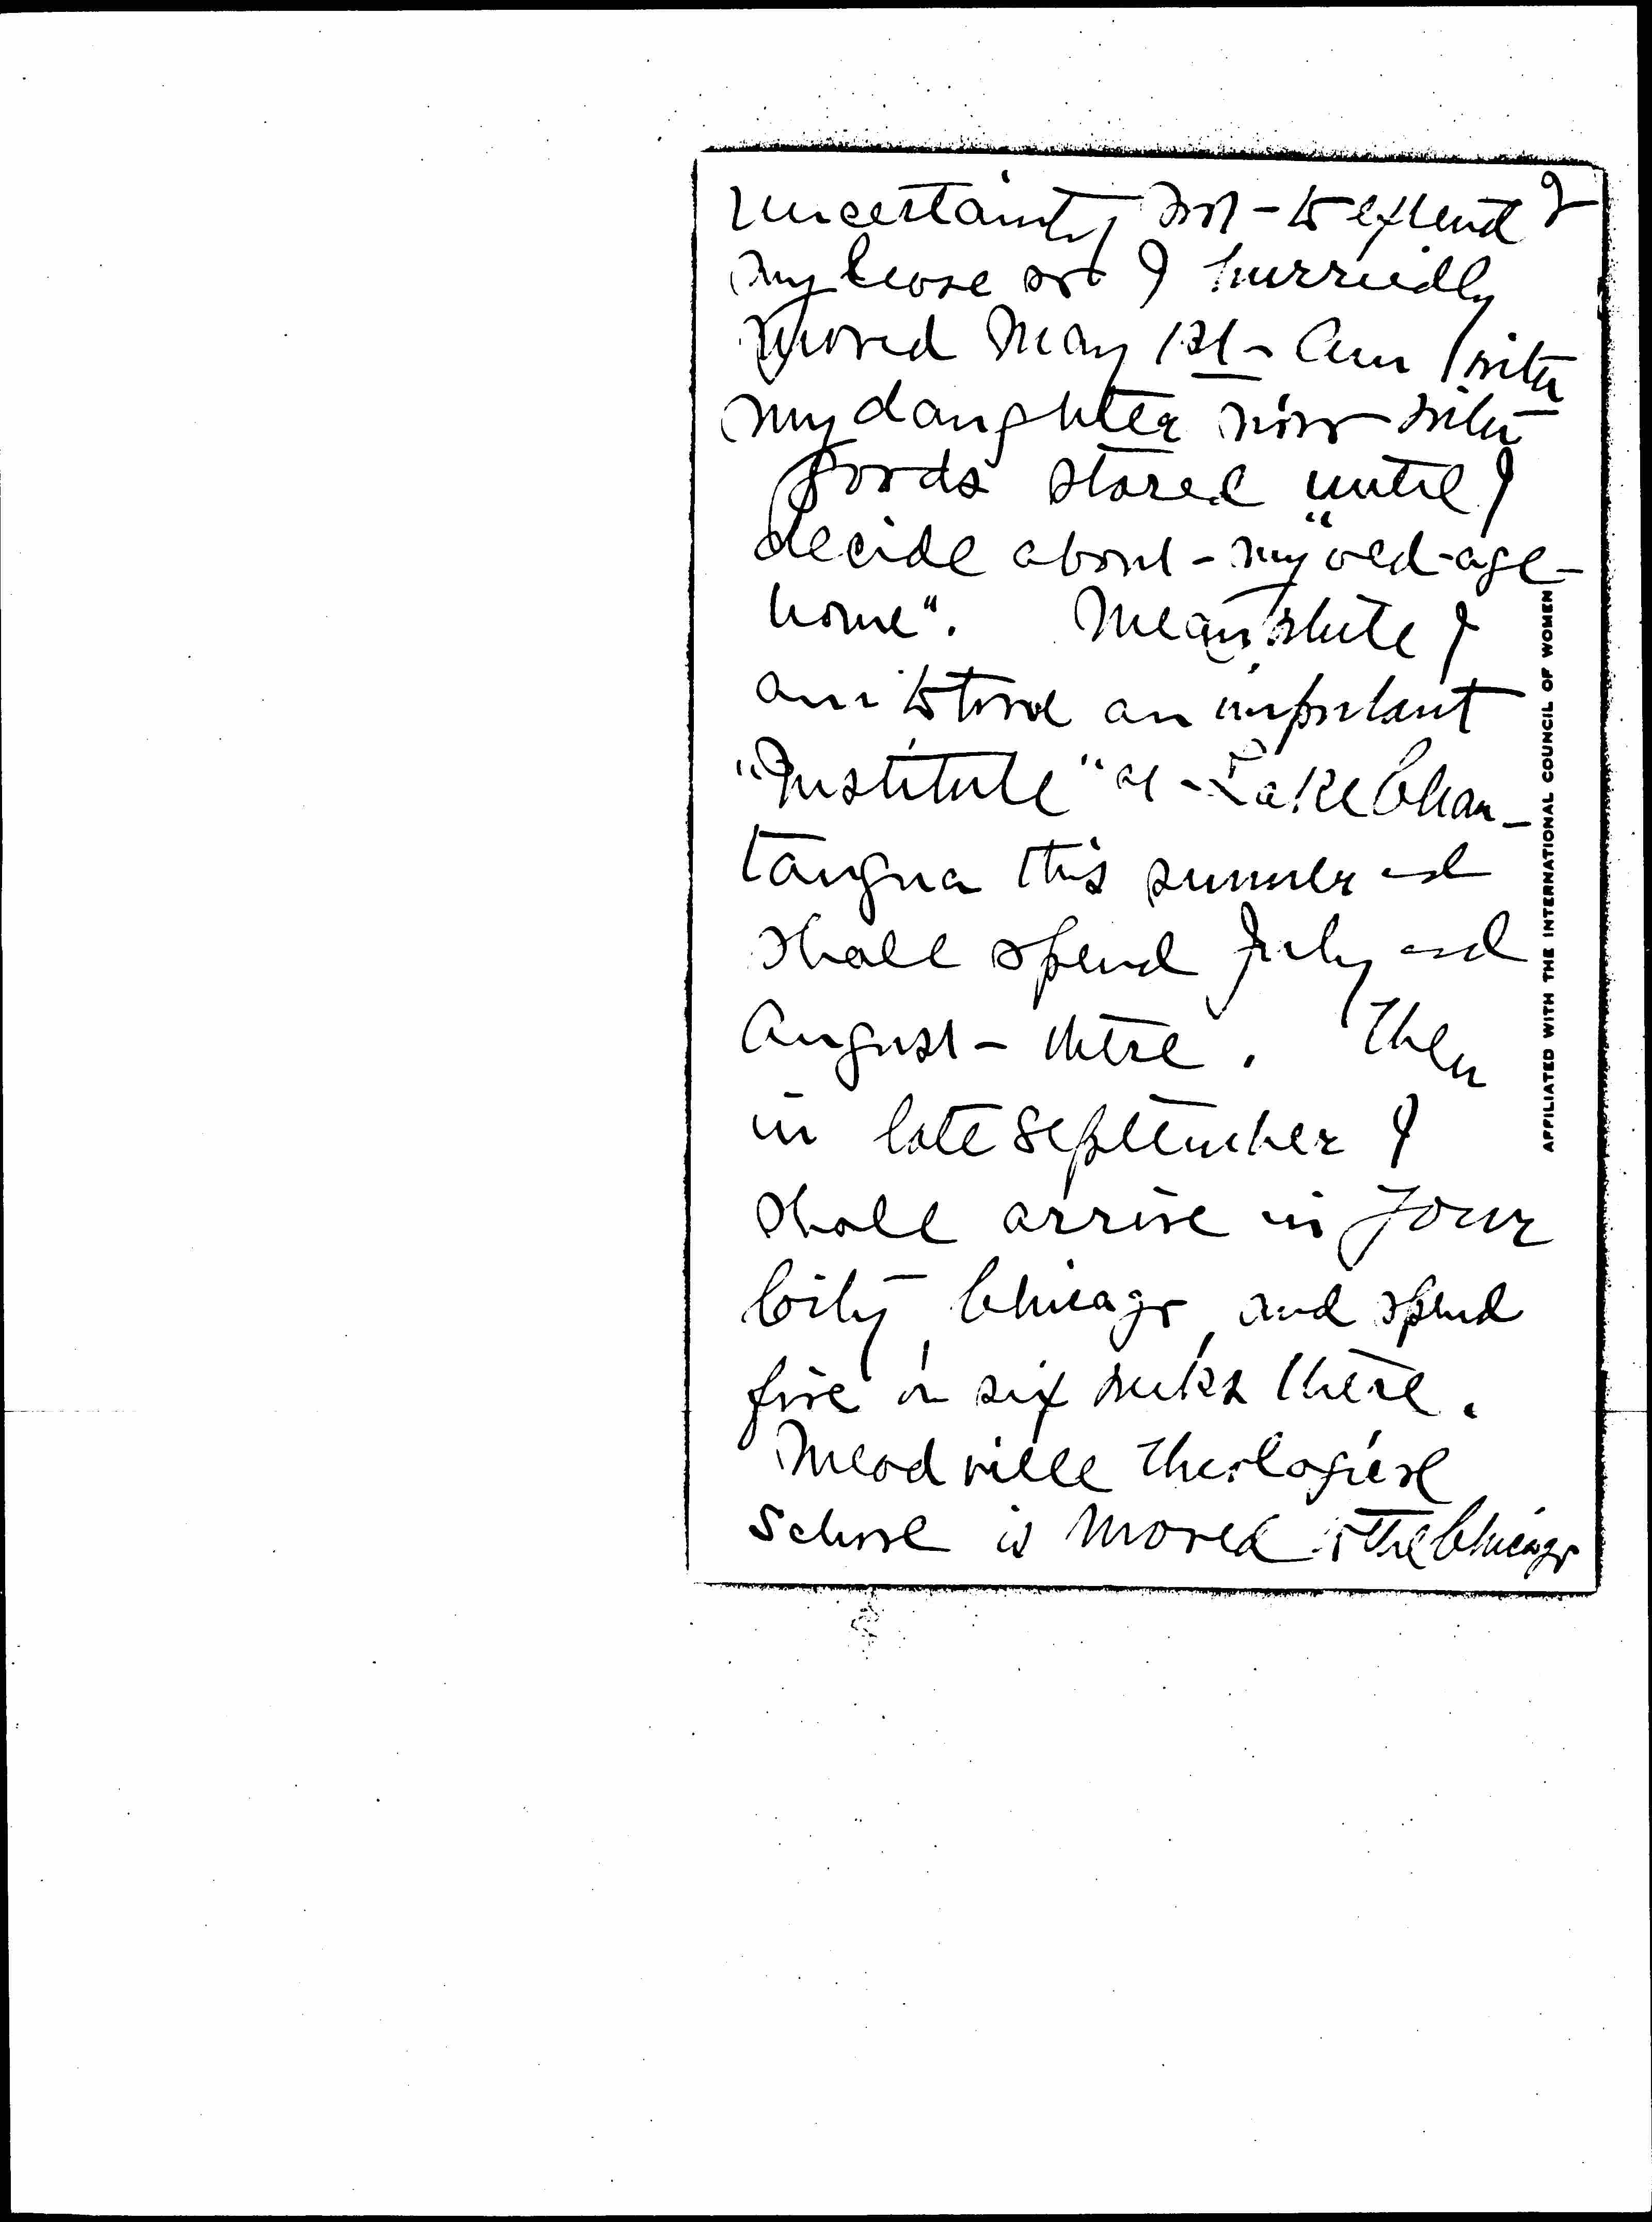 uncertainty not to extend
my lease so I hurriedly
moved May 1st - Am with
my daughter now with
goods stored until I
decide about my "old-age-
home". Meanwhile I
am to hold an important
"Institute" at Lake Chau-
tauqua this summer and
shall spend July and
August there. Then
in late September I
shall arrive in your
City, Chicago, and spend
five or six weeks there.
Meadville Theological
School is moved to the Chicago
AFFILIATED WITH THE INTERNATIONAL COUNCIL OF WOMEN